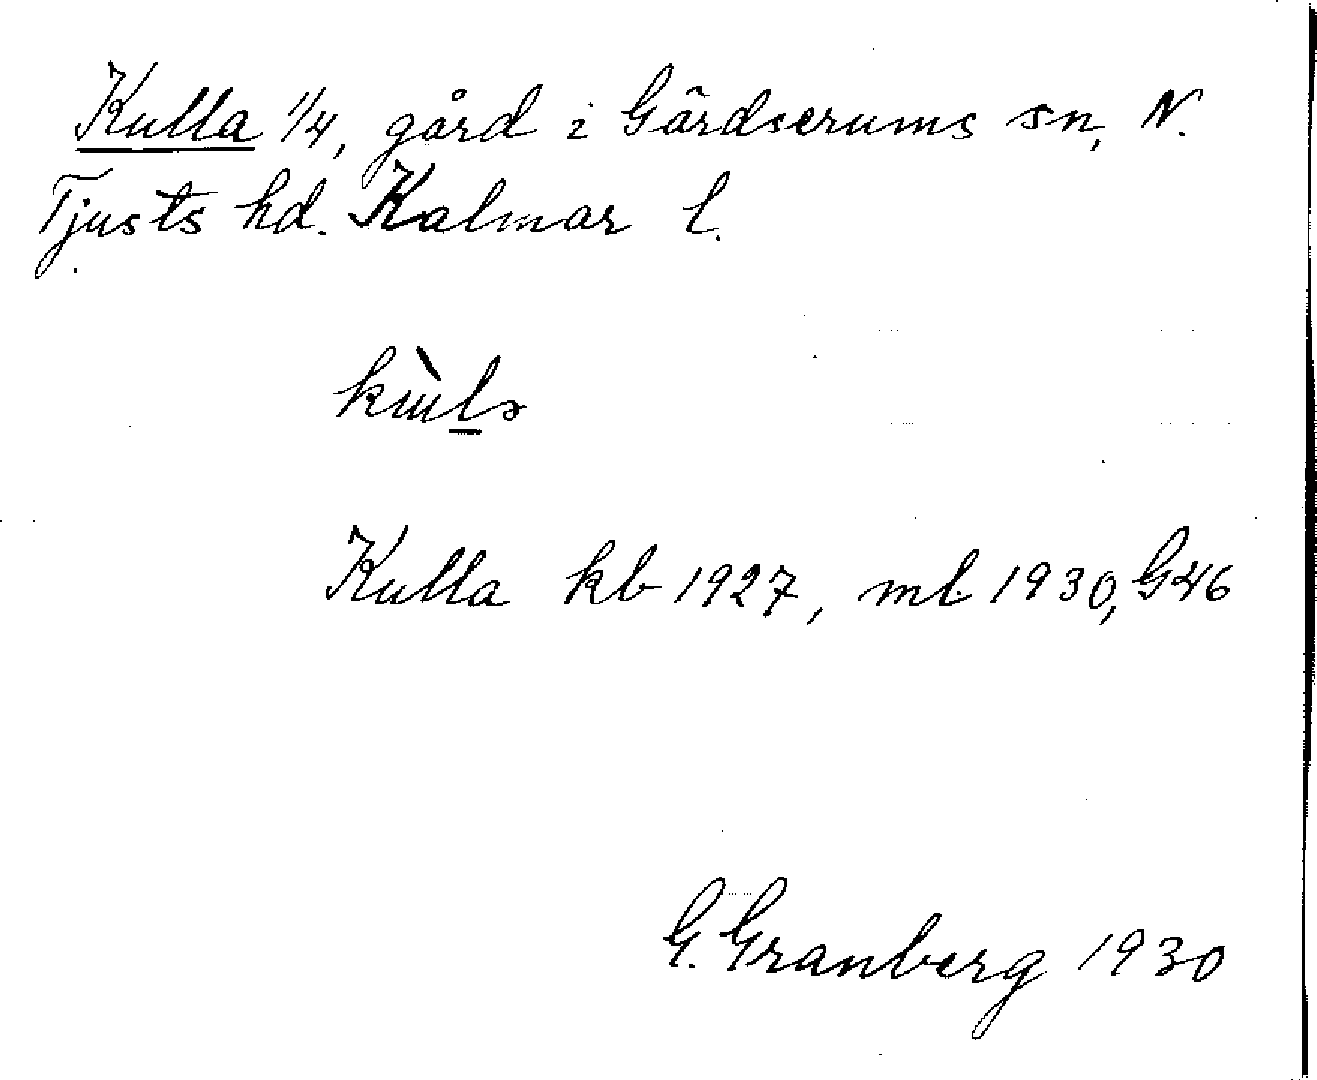 Kulla 1/4, gård i Gärdserums sn, N.
Tjusts hd. Kalmar l.
Kulla kb 1927, ml 1930, G46
G. Granberg 1930